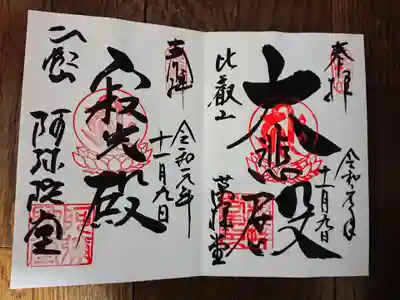 奉拝
令和元年
十一月九日
大悲殿
比叡山
萬拝堂
奉拝
令和元年
十一月九日
寂光殿
比叡山
阿弥陀堂